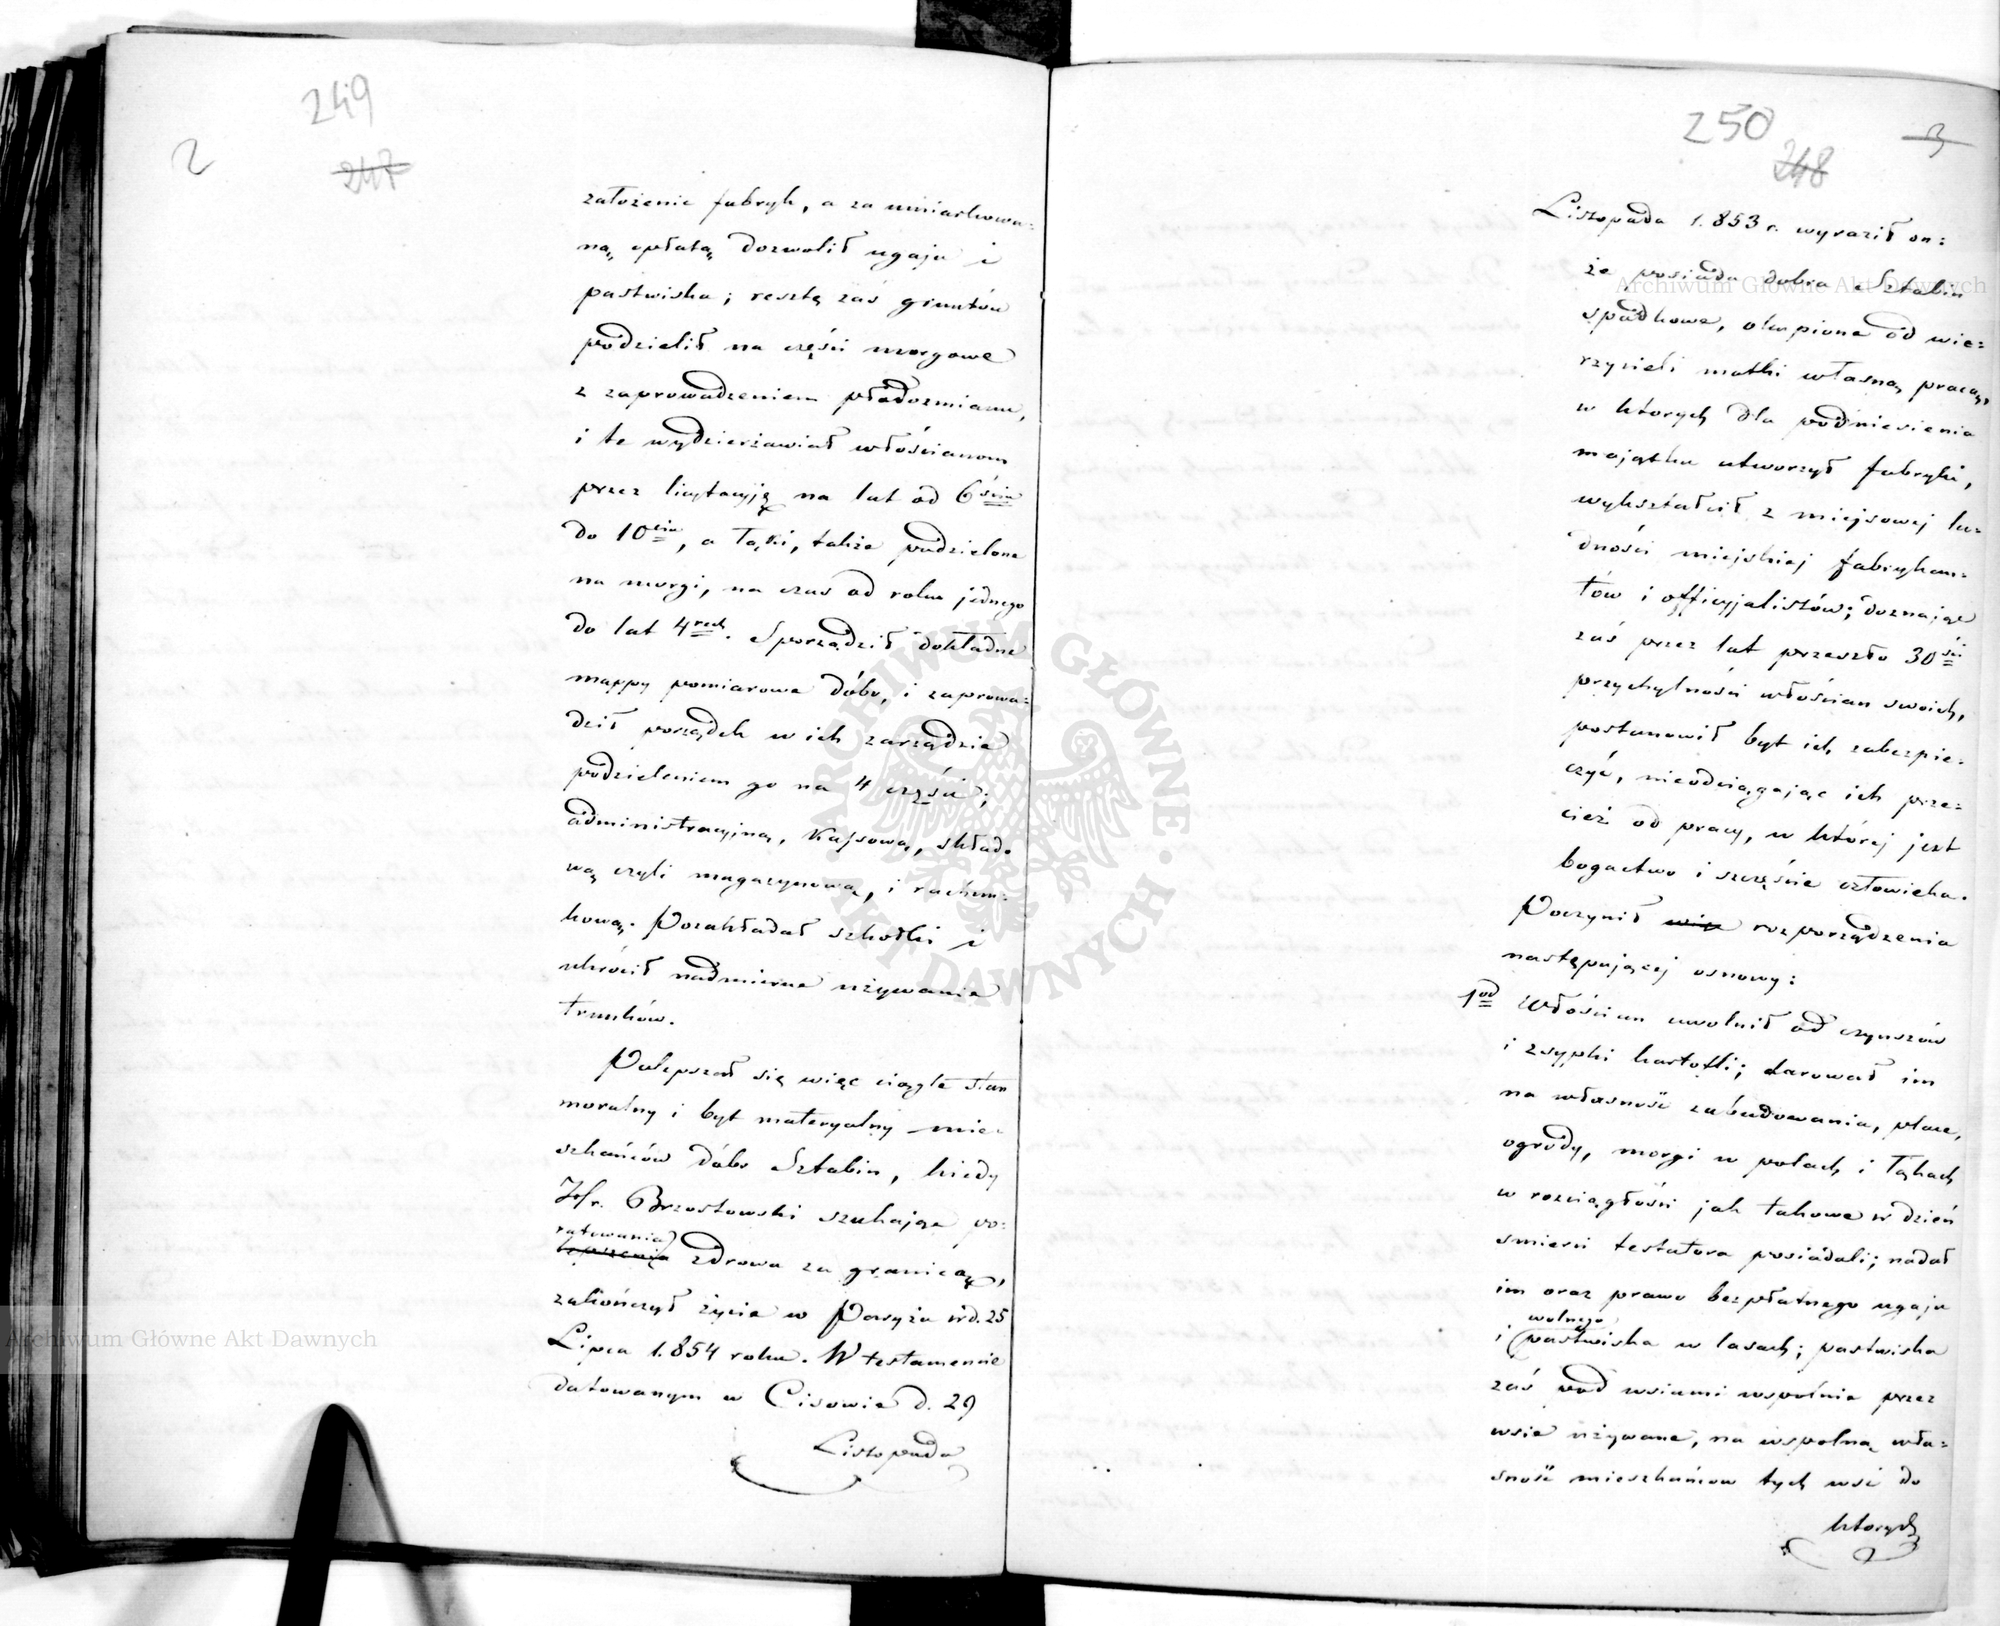 249
2
247
założenie fabryk, a za umiarkowa=
ną opłatą dozwolił ugaju i
pastwiska; resztę zaś gruntów
podzielił na części morgowe
z zaprowadzeniem płodozmianu,
i te wydzierżawiał włościanom
przez licytacyją na lat od 6ściu
do 10ciu, a łąki, także podzielone
na morgi, na czas od roku jednego
do lat 4rech. Sporządził dokładne
mappy pomiarowe dóbr, i zaprowa=
dził porządek w ich zarządzie
podzieleniem go na 4 części;
administracyjną, Kassową, składo
wą czyli magazynową, i rachun=
kową. Pozakładał szkołki i
ukrócił nadmierne używanie
trunków.
Polepszał się więc ciągle stan
moralny i byt materyalny mie=
szkańców dóbr Sztabin, kiedy
Hr. Brzostowski szukając po=
ratowania
lepszenia zdrowia za granicą,
zakończył życie w Paryżu d. 25
Lipca 1.854 roku. W testamencie
datowanym w Cisowie d. 29
Listopada
250
248
3
Listopada 1.853 r. wyraził on:
że posiada dobra Sztabin
spadkowe, okupione od wie=
rzycieli matki własną pracą,
w ktorych dla podniesienia
majątku utworzył fabryki,
wykształcił z miejsowej lu=
dności miejskiej fabrykan=
tów i officyjalistów; doznając
zaś przez lat przeszło 30ści
przychylności włościan swoich,
postanowił byt ich zabezpie=
czyć, nieodciągając ich prze=
cież od pracy, w której jest
bogactwo i szczęście człowieka.
Poczynił więc rozporządzenia
następującej osnowy:
1od Włościan uwolnił od czynszów
i zsypki kartofli; darował im
na własność zabudowania, place,
ogrody, morgi w polach i łąkach
w rozciągłości jak takowe w dzień
smierci testatora posiadali; nadał
im oraz prawo bezpłatnego ugaju
wolnego
i pastwiska w lasach; pastwiska
zaś pod wsiami wspolnie przez
wsie używane, na wspolną wła=
sność mieszkańcow tych wsi do
ktorych
Archiwum Główne Akt Dawnych
Archiwum Główne Akt Dawnych
ARCHIWUM GŁÓWNE AKT DAWNYCH